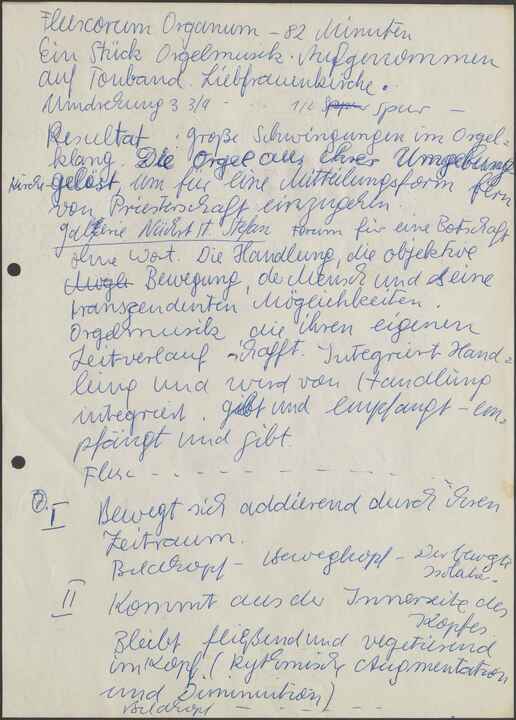 Fluxorum Organum – 82 Minuten
Ein Stück Orgelmusik. Aufgenommen
auf Tonband. Liebfrauenkirche.
Umdrehung 3 3/4 - - 1/2 Spur –
Resultat. große Schwingungen im Orgel=
klang. Die Orgel aus ihrer Umgebung
Kirche gelöst, um für eine Mitteilungsform fern
von Priesterschaft einzugehen
galerie Nächst St. Stefan Forum für eine Botschaft
ohne Wort. Die Handlung, die objektive
Bewegung, der Mensch und seine
transzendenten Möglichkeiten.
Orgelmusik die ihren eigenen
Zeitverlauf schafft. Integriert Hand-
lung und wird von Handlung
integriert. gibt und empfangt – em-
pfängt und gibt.
Flux - - - - - - - -
I Bewegt sich addierend durch ihren
Zeitraum.
Bildkopf – Bewegkopf – Der bewegte
Isolator.
II Kommt aus der Innenseite des
Kopfes
Bleibt fließend und vegetierend
im Kopf. (Rytmische Augmentation
und Diminution)
Bildkopf - - - -